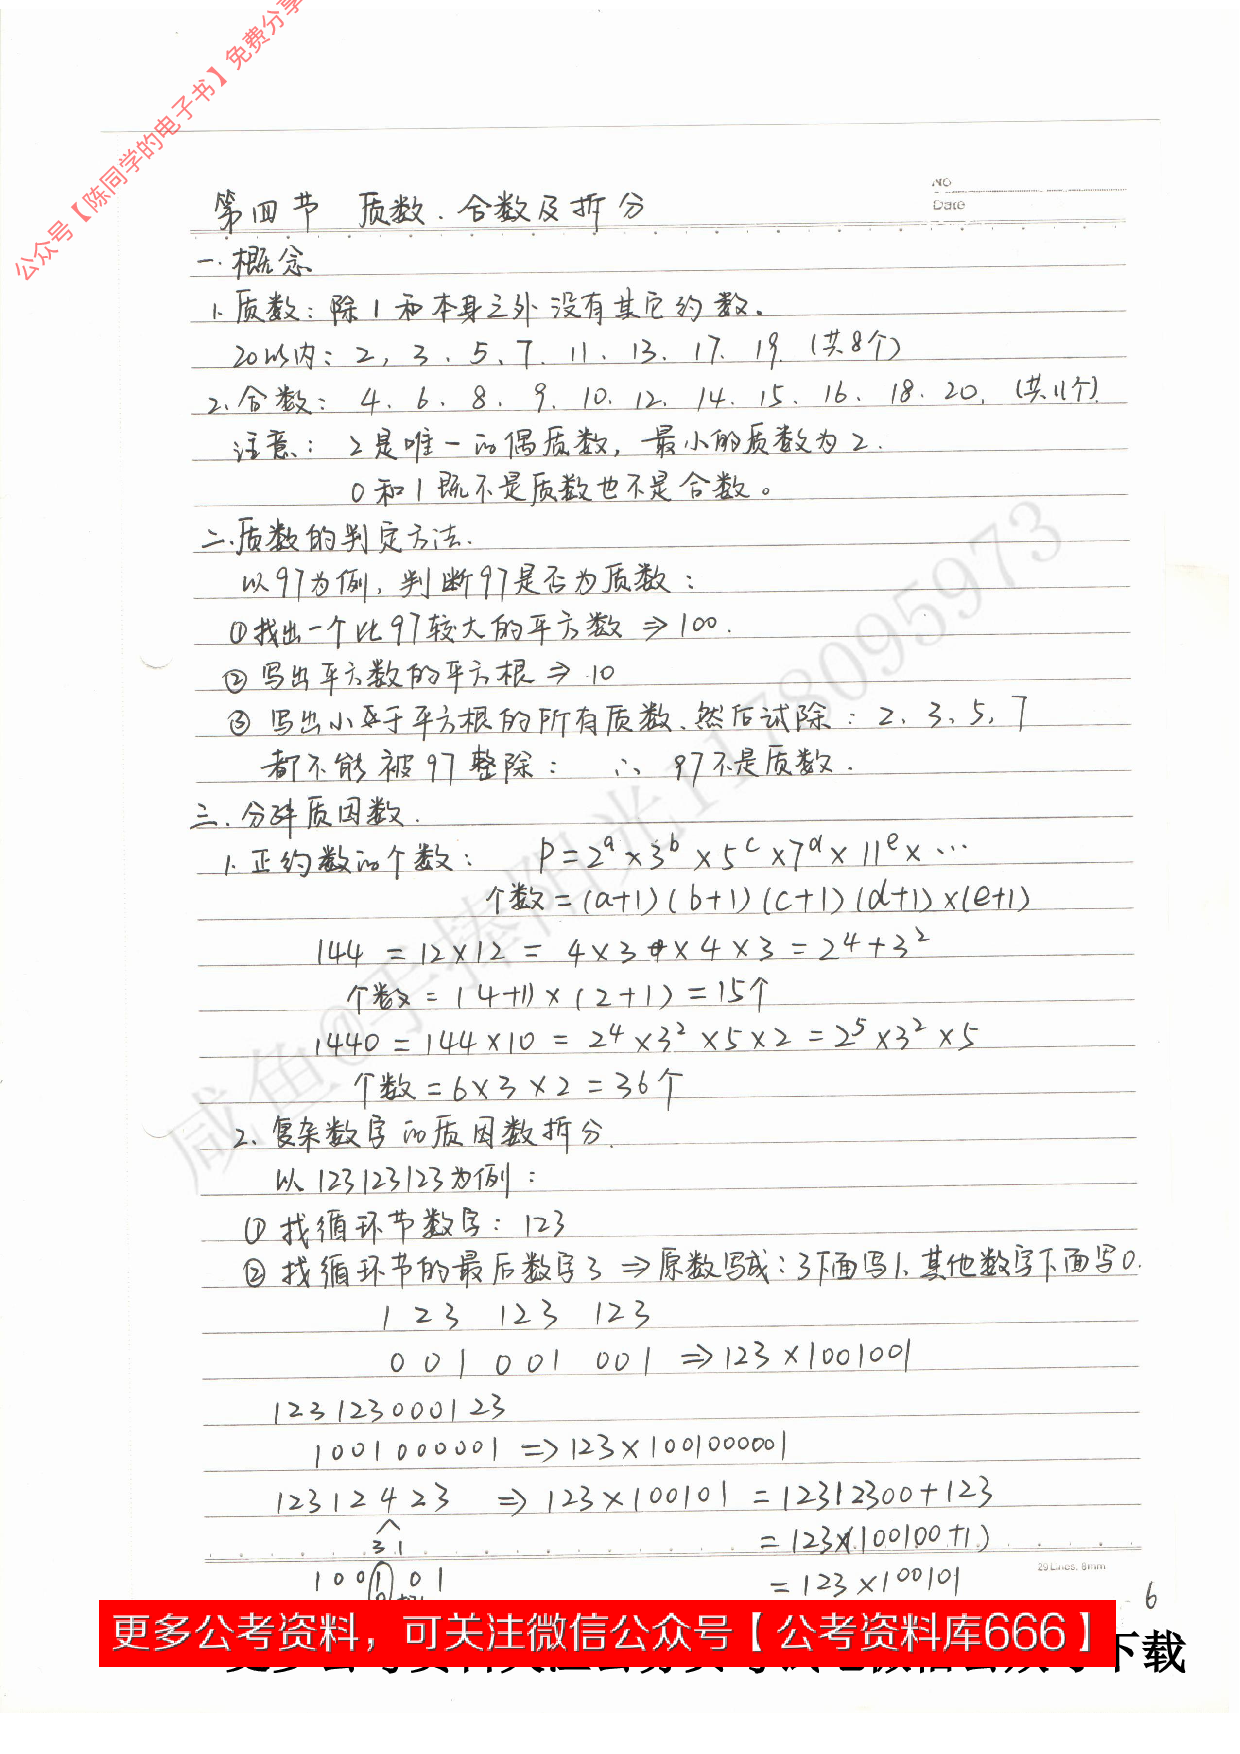 公众号【陈同学的电子书】免费分享
NO
Date
第四节 质数、合数及拆分
一.概念
1.质数：除1和本身之外没有其它约数。
20以内：2，3、5、7、11、13、17、19（共8个）
2.合数：4、6、8、9、10、12、14、15、16、18、20.（共11个）
注意：2是唯一的偶质数，最小的质数为2.
0和1既不是质数也不是合数。
二.质数的判定方法.
以97为例，判断97是否为质数：
①找出一个比97较大的平方数⇒100.
②写出平方数的平方根⇒10
③写出小于平方根的所有质数、然后试除：2、3、5、7
都不能被97整除： ∴97不是质数.
三.分解质因数.
1.正约数的个数： P=2^a×3^b×5^c×7^d×11^e×…
个数=(a+1)(b+1)(c+1)(d+1)×(e+1)
144=12×12=4×3×4×3=2^4+3^2
个数=(4+1)×(2+1)=15个
1440=144×10=2^4×3^2×5×2=2^5×3^2×5
个数=6×3×2=36个
2.复杂数字的质因数拆分.
以123123123为例：
①找循环节数字：123
②找循环节的最后数字3⇒原数写成：3下面写1、其他数字下面写0.
123 123 123
001 001 001⇒123×1001001
123123000123
1001000001⇒123×1001000001
12312423⇒123×100101=12312300+123
31
=123×(100100+1)
100101
=123×100101
29 Lines. 8mm
6
咸鱼@手捧阳光1178095973
更多公考资料，可关注微信公众号【公考资料库666】
下载